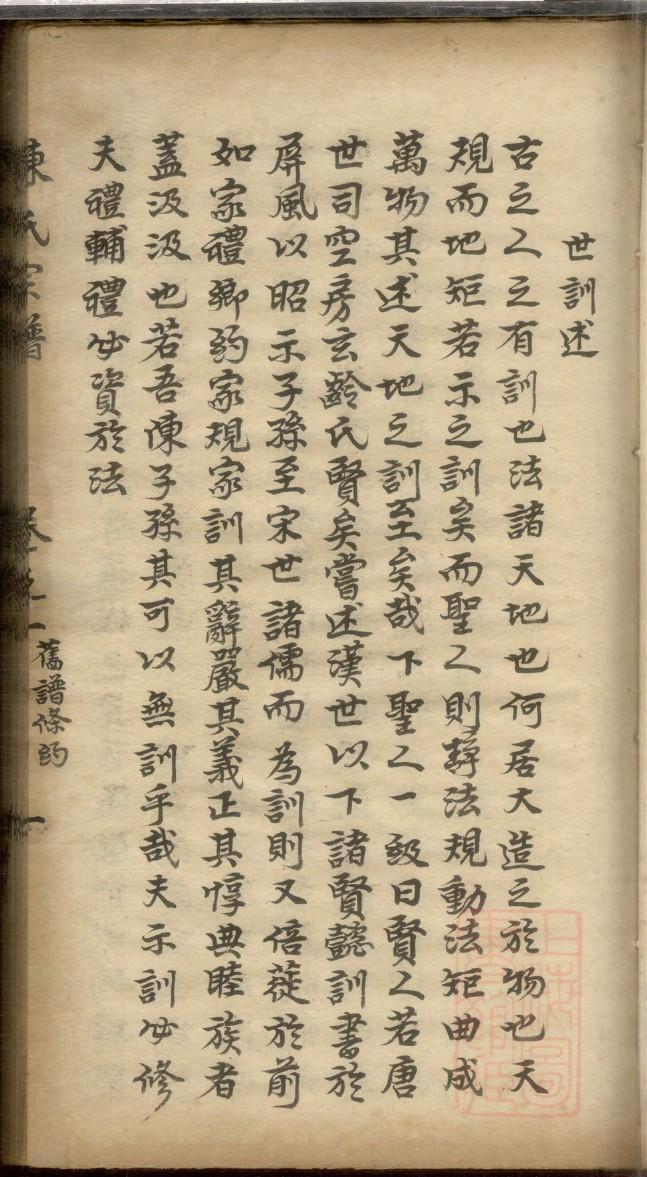 世訓述
古之人之有訓也法諸天地也何居大造之於物也天
規而地矩若示之訓矣而聖人則靜法規動法矩曲成
萬物其述天地之訓至矣哉下聖人一級曰賢人若唐
世司空房玄齡氏賢矣嘗述漢世以下諸賢懿訓書於
屏風以昭示子孫至宋世諸儒而為訓則又倍蓰於前
如家禮鄉約家規家訓其辭嚴其義正其惇典睦族者
蓋汲汲也若吾陳子孫其可以無訓乎哉夫示訓必修
夫禮輔禮必資於法
陳氏宗譜
卷之一
舊譜條約
一